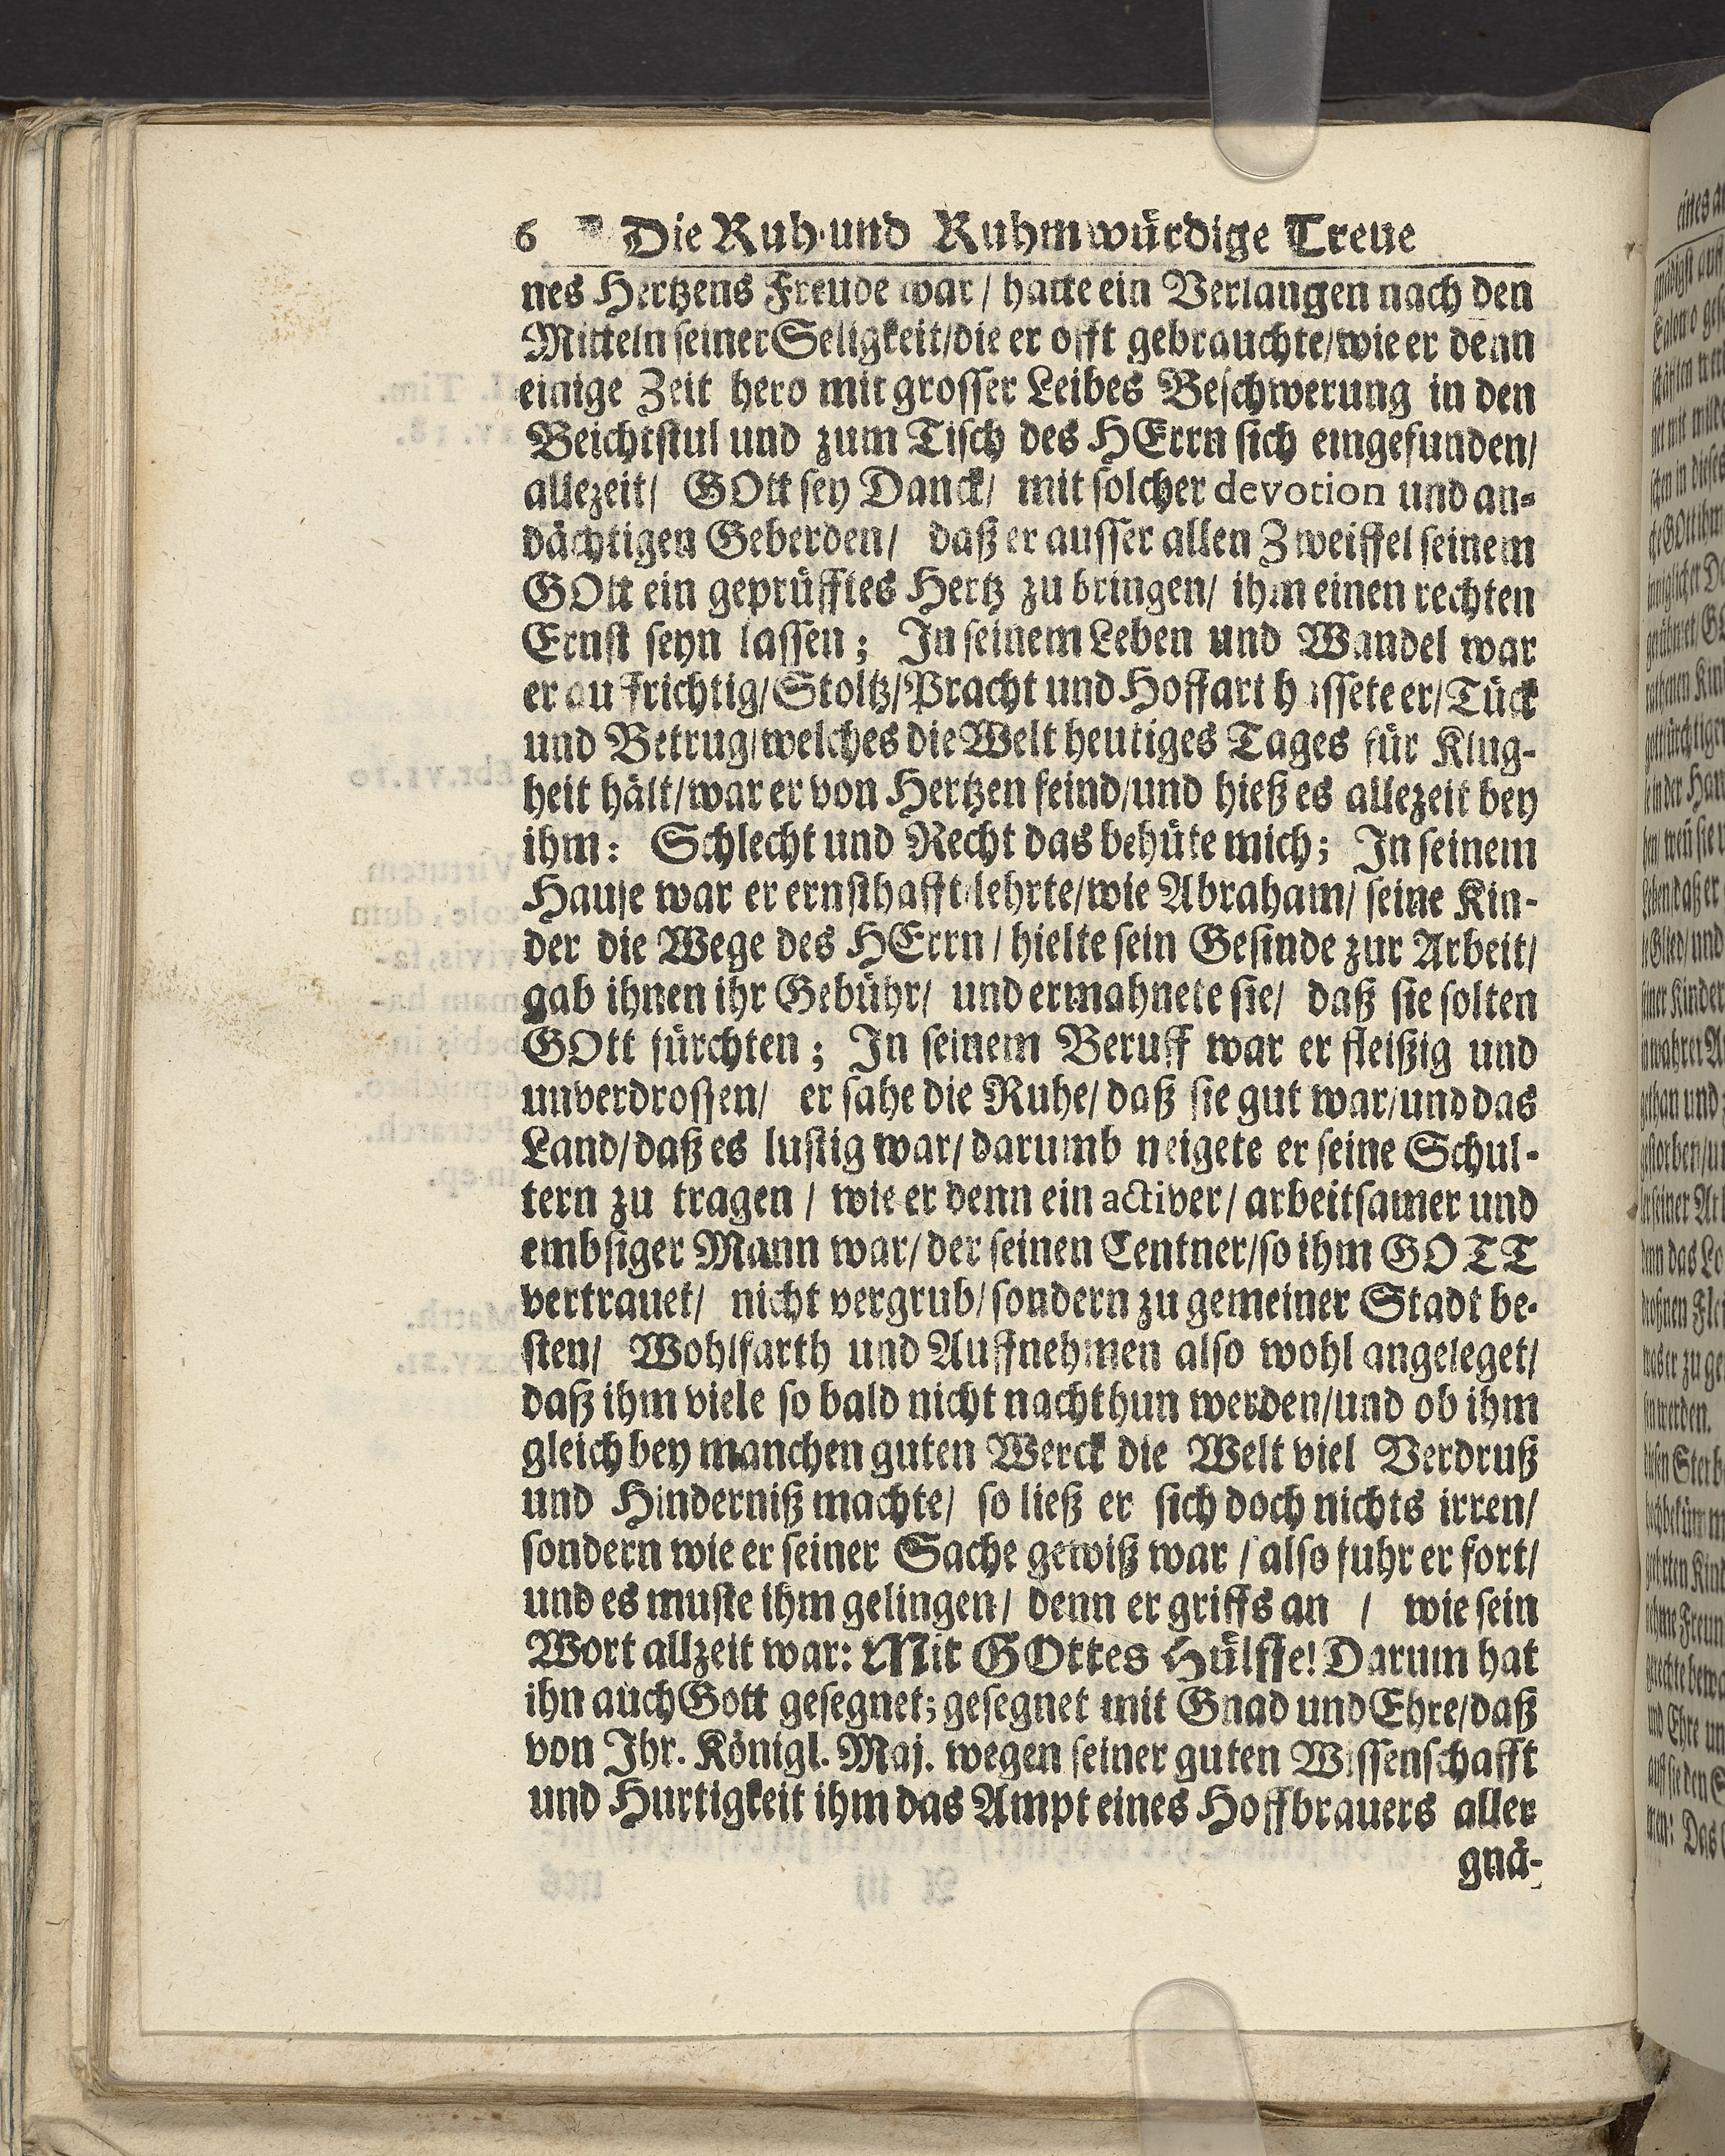 6 Die Ruh- und Ruhmwürdige Treue
nes Hertzens Freude war / hatte ein Verlangen nach den
Mitteln seiner Seligkeit/die er offt gebrauchte/wie er denn
einige Zeit hero mit grosser Leibes Beschwerung in den
Beichtstul und zum Tisch des HErrn sich eingefunden/
allezeit/ GOtt sey Danck/ mit solcher devotion und an-
dächtigen Geberden/ daß er ausser allen Zweiffel seinem
GOtt ein geprüfftes Hertz zu bringen/ ihm einen rechten
Ernst seyn lassen; In seinem Leben und Wandel war
er auffrichtig/Stoltz/Pracht und Hoffart hassete er/Tück
und Betrug/welches die Welt heutiges Tages für Klug-
heit hält/war er von Hertzen feind/und hieß es allezeit bey
ihm: Schlecht und Recht das behüte mich; In seinem
Hause war er ernsthafft/lehrte/wie Abraham/ seine Kin-
der die Wege des HErrn / hielte sein Gesinde zur Arbeit/
gab ihnen ihr Gebühr/ und ermahnete sie/ daß sie solten
GOtt fürchten; In seinem Beruff war er fleißig und
unverdrossen/ er sahe die Ruhe/ daß sie gut war/und das
Land/daß es lustig war/ darumb neigete er seine Schul-
tern zu tragen / wie er denn ein activer/ arbeitsamer und
embsiger Mann war/ der seinen Centner/so ihm GOTT
vertrauet/ nicht vergrub/ sondern zu gemeiner Stadt be-
sten/ Wohlfarth und Auffnehmen also wohl angeleget/
daß ihm viele so bald nicht nachthun werden/und ob ihm
gleich bey manchen guten Werck die Welt viel Verdruß
und Hinderniß machte/ so ließ er sich doch nichts irren/
sondern wie er seiner Sache gewiß war / also fuhr er fort/
und es muste ihm gelingen/ denn er griffs an / wie sein
Wort allzeit war: Mit GOttes Hülffe! Darum hat
ihn auch Gott gesegnet; gesegnet mit Gnad und Ehre/daß
von Ihr. Königl. Maj. wegen seiner guten Wissenschafft
und Hurtigkeit ihm das Ampt eines Hoffbrauers aller
gnä-